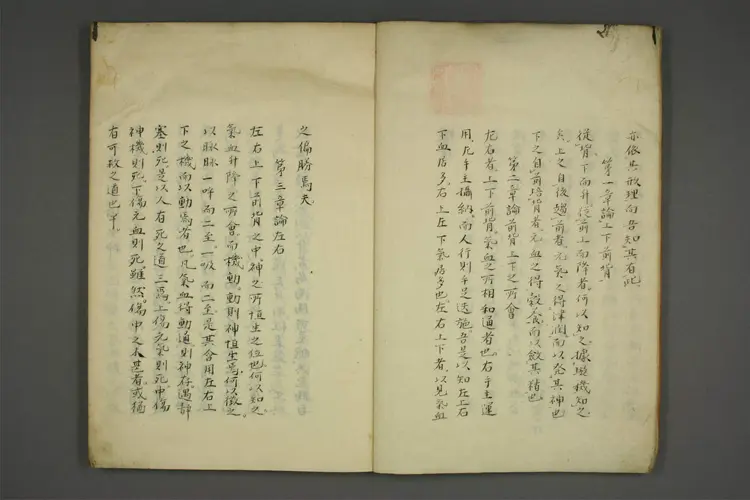 亦依其形理而告知其有此
第一章論上下前背
從背下而升從前上而降者何以知之據璇機知之
矣上之自後趨前者元氣之得津潤而以発其神也
下之自前培背者元血之得穀養而以斂其精也
第二章論前背上下之所會
左右者上下前背氣血之所相和通者也右手主運
用左手主攝納而人行則手足迭施吾是以知左上右
下血居多右上左下氣居多也左右上下者以見氣血
之偏勝焉夫
第三章論左右
左右上下前背之中神之所恒生之位也何以知之
氣血升降之所會而機動動則神恒生焉何以徵之
以脉脉一呼而二至一吸而二至是其合用左右上
下之機而以動焉者也凡氣血得動通則神存遇靜
塞則死是以人有死之道三焉上傷元氣則死中傷
神機則死下傷元血則死雖然傷中之未甚者或猶
有可救之道也乎